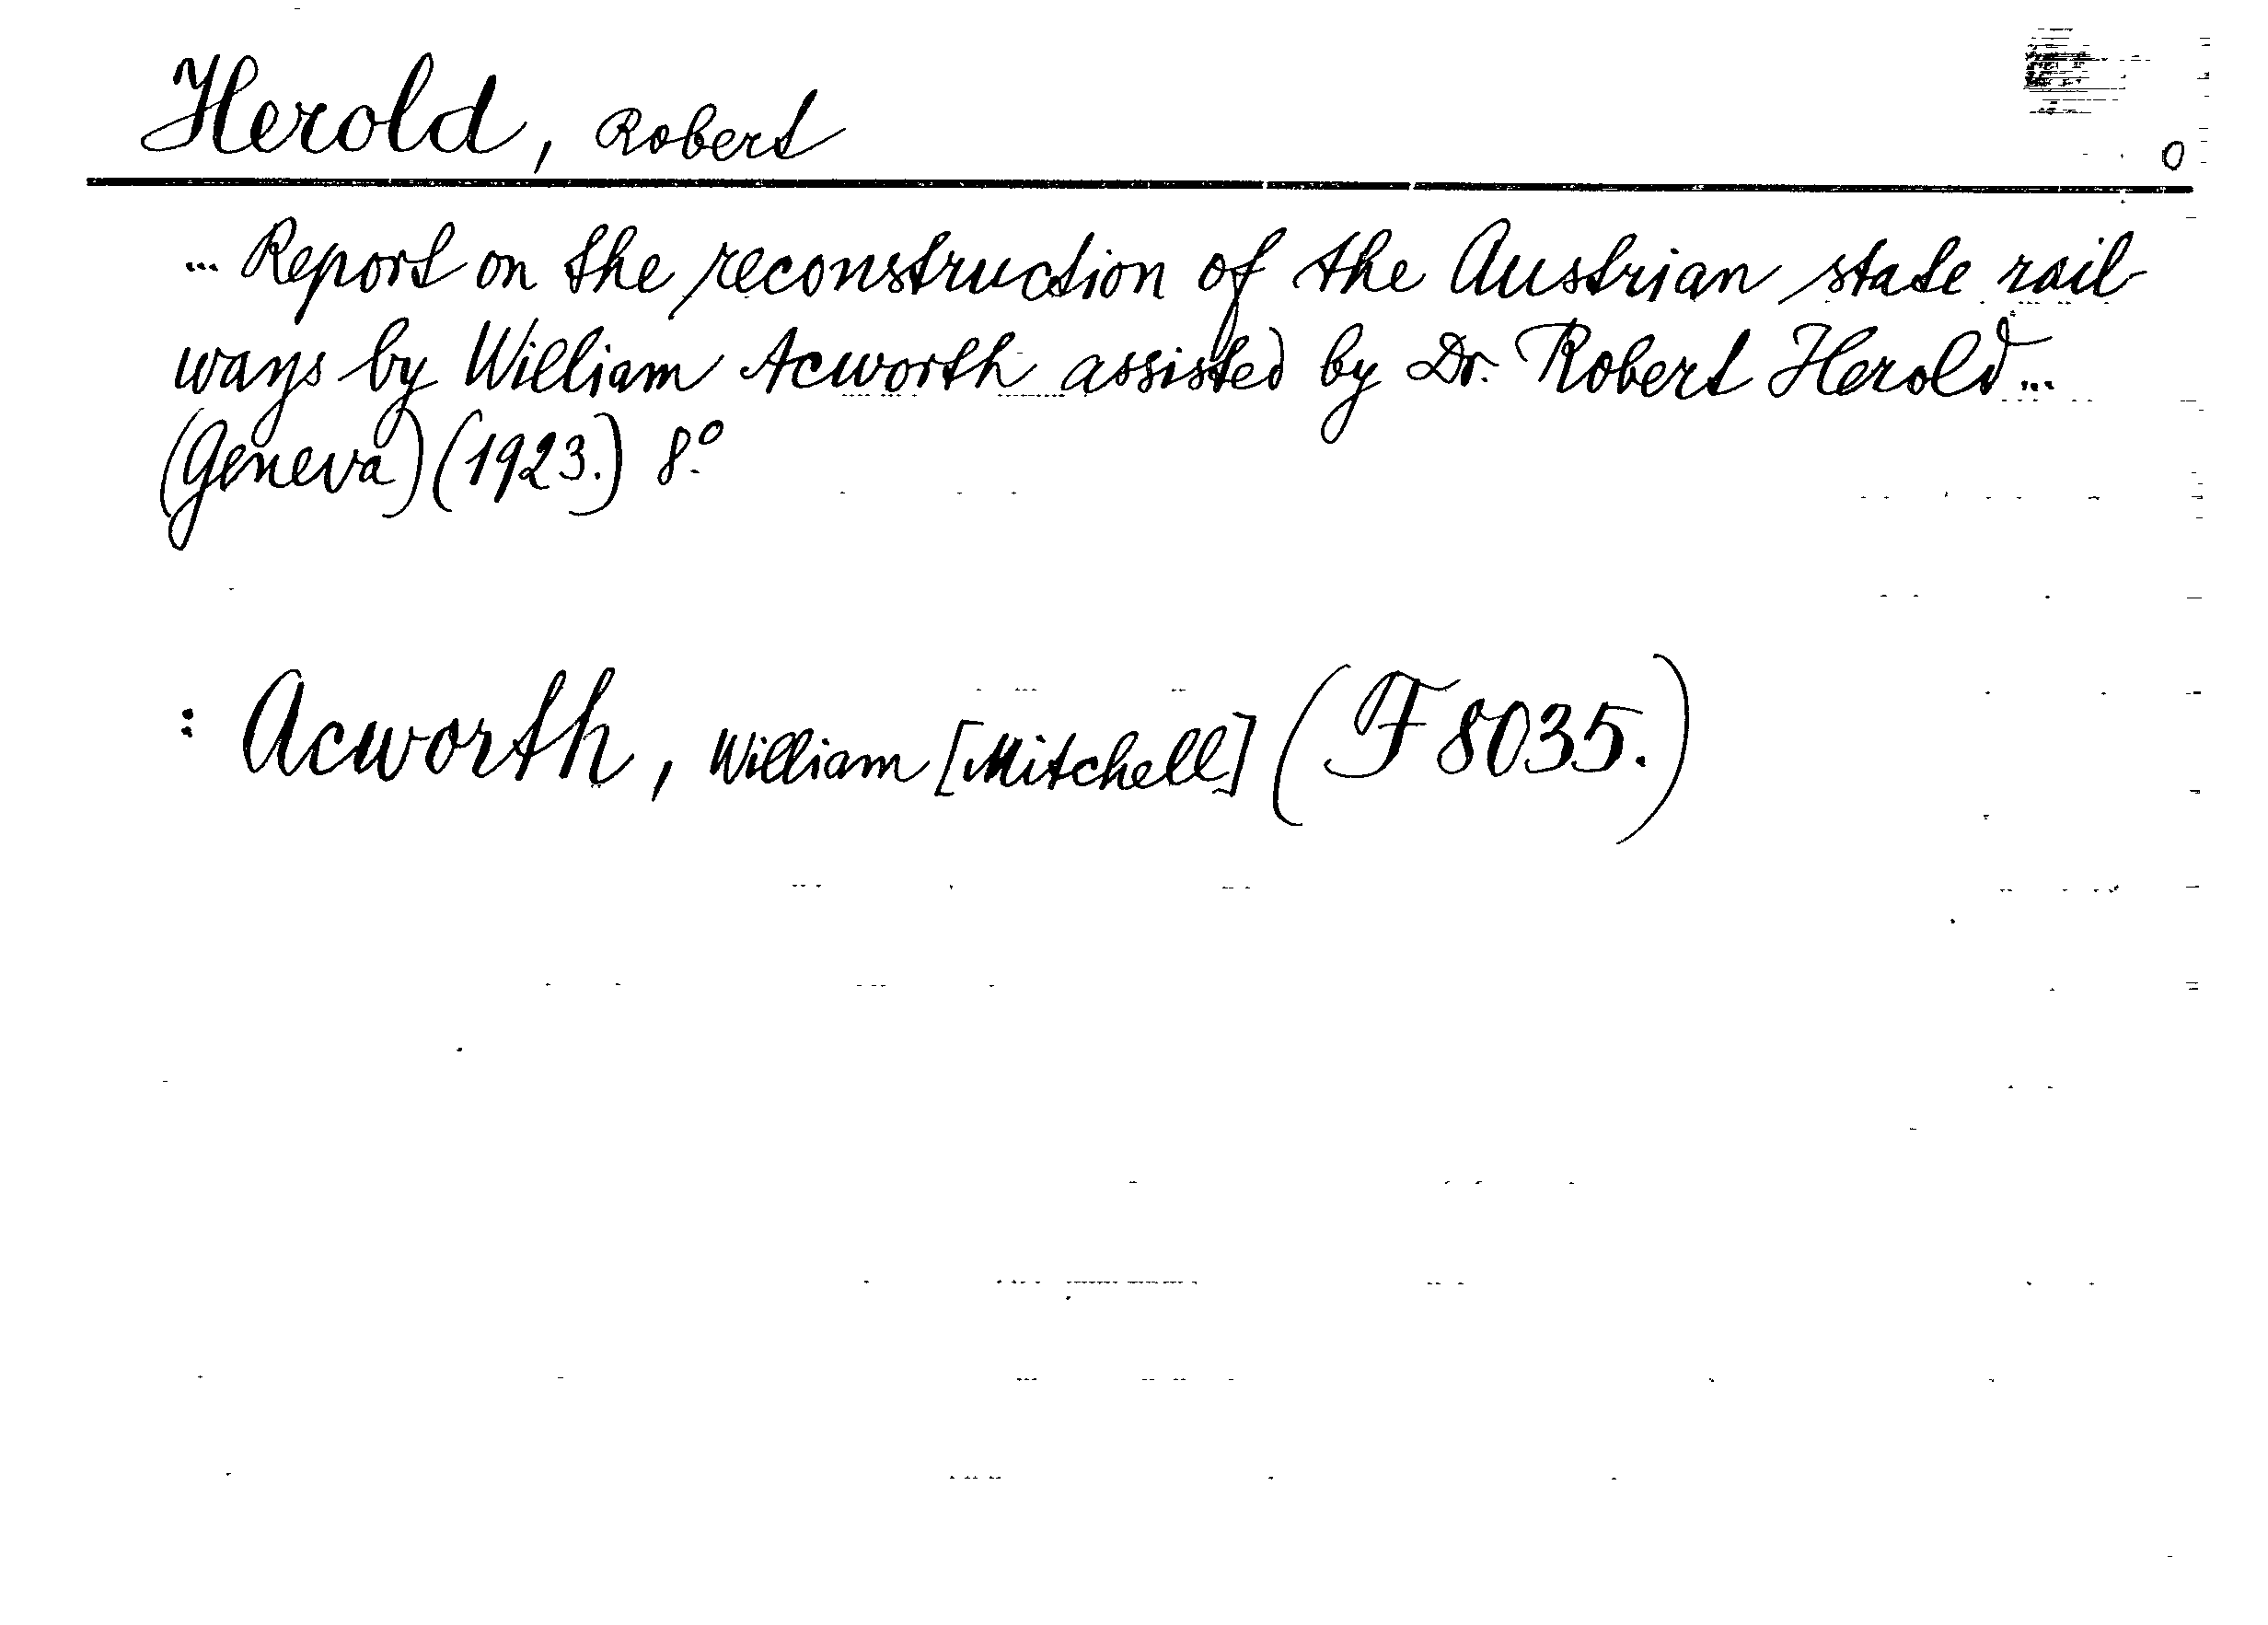 Herold, Robert
0
... Report on the reconstruction of the Austrian state rail-
ways by William Acworth assisted by Dr. Robert Herold ...
(Geneva) (1923.) 8.°
: Acworth, William [Mitchell] (F 8035.)